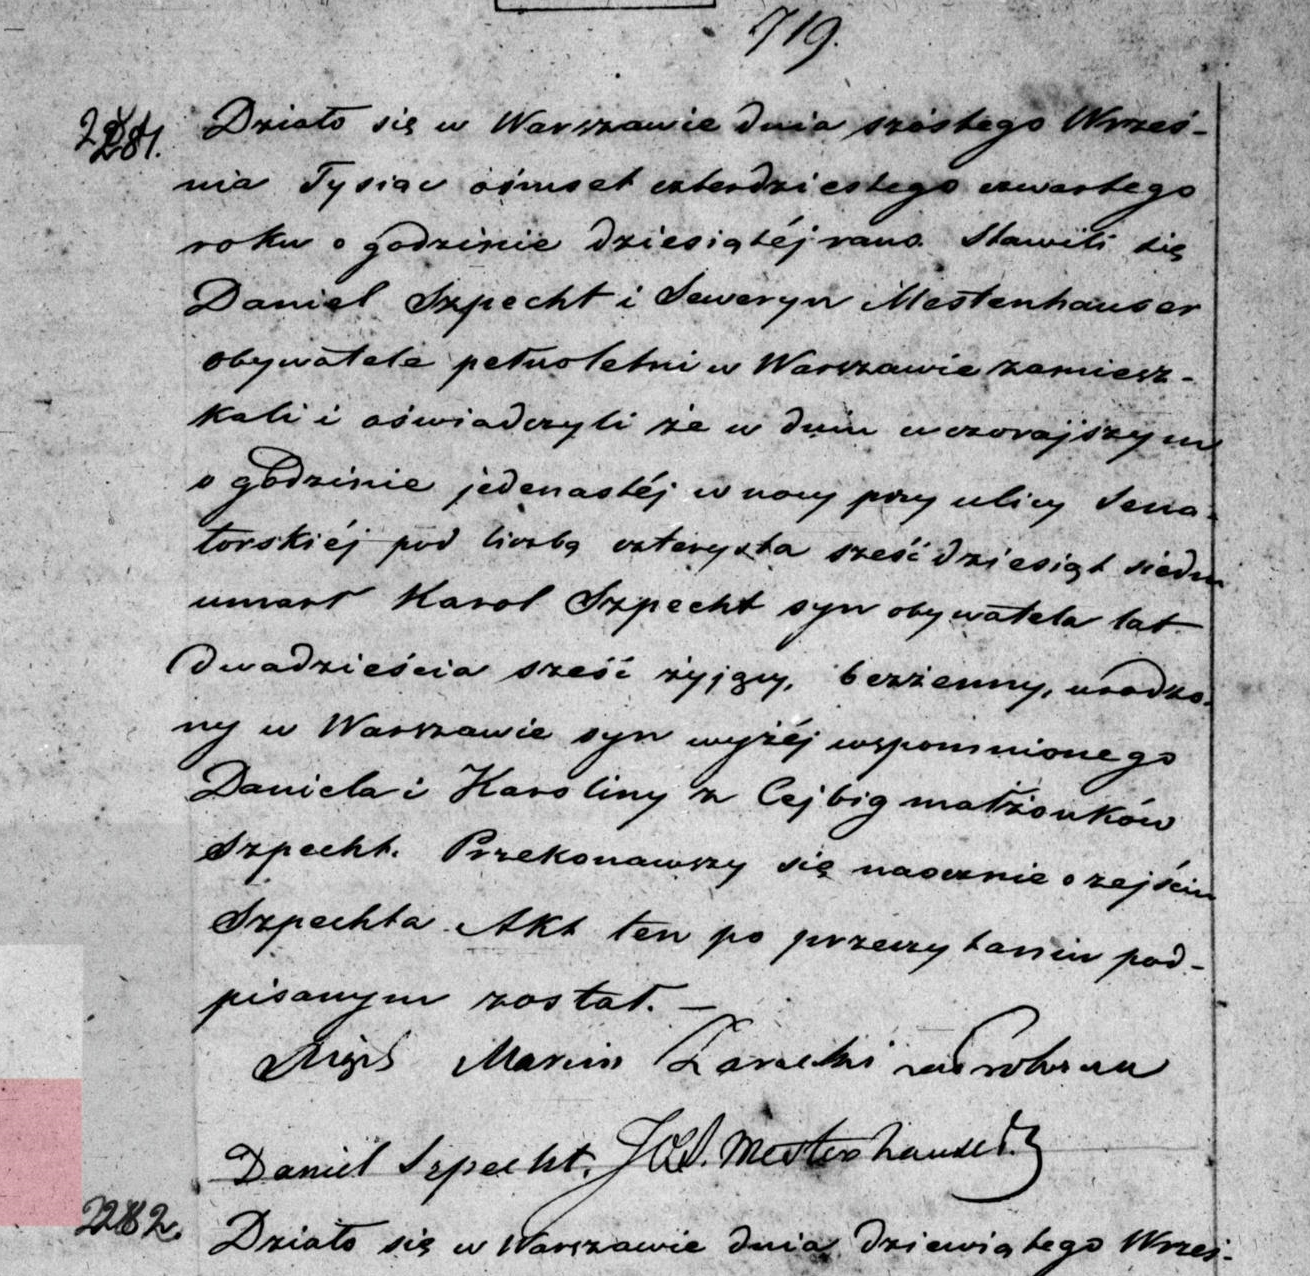 719.
2281. Działo się w Warszawie dnia szóstego Wrześ-
nia Tysiąc ośmset czterdziestego czwartego
roku o godzinie dziesiątéj rano. Stawili się
Daniel Szpecht i Seweryn Mestenhauser
obywatele pełnoletni w Warszawie zamiesz-
kali i oświadczyli że w dniu wczorajszym
o godzinie jedenastéj w nocy przy ulicy Sena-
torskiéj pod liczbą czterysta sześćdziesiąt siedm
umarł Karol Szpecht syn obywatela lat
dwadzieścia sześć żyjący, bezżenny, urodzo-
ny w Warszawie syn wyżéj wspomnionego
Daniela i Karoliny z Cejbig małżonków
Szpecht. Przekonawszy się naocznie o zejściu
Szpechta Akt ten po przeczytaniu pod-
pisanym został. —
Marcin
Daniel Szpecht. Mestenhauser.
2282. Działo się w Warszawie dnia dziewiątego Wrześ-